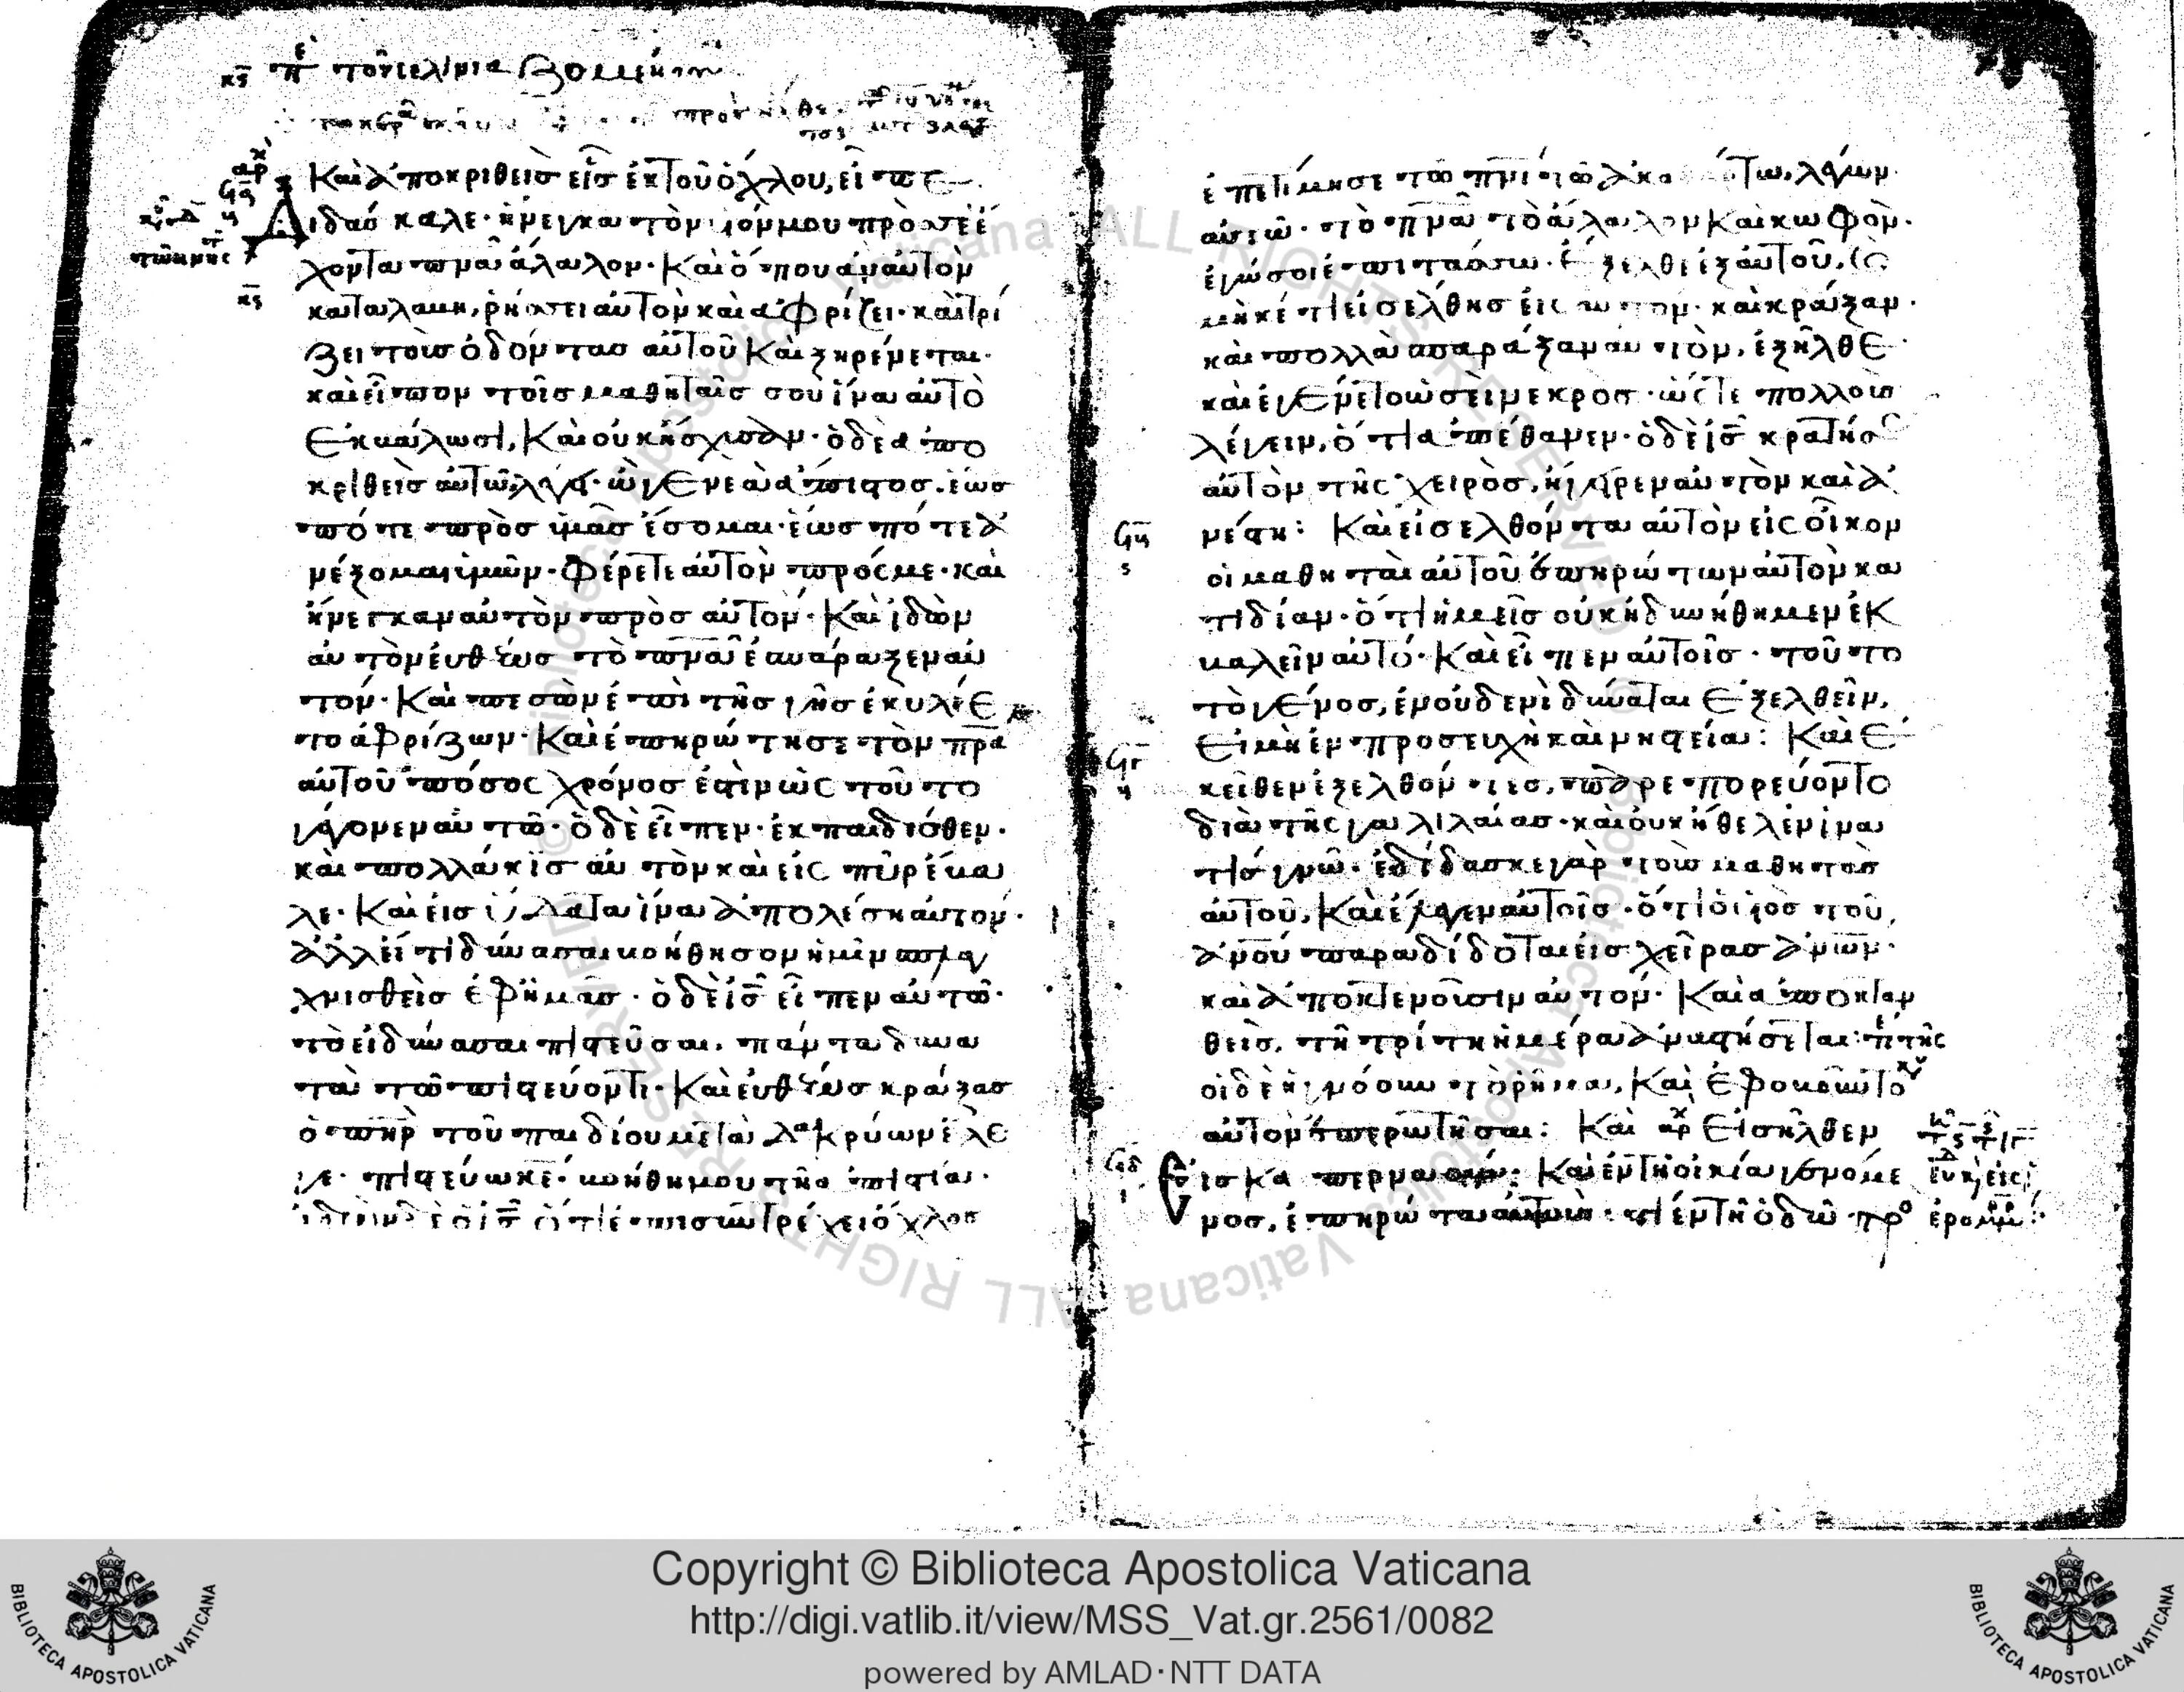 κϛ περὶ τοῦ σεληνιαζομένου
Καὶ ἀποκριθεὶσ εἷσ ἐκ τοῦ ὄχλου, εἶπε
Διδάσκαλε· ἤνεγκα τὸν υἱόν μου πρὸσ σὲ ἔ
χοντα πνᾶ ἄλαλον· Καὶ ὅπου ἂν αὐτὸν
καταλάβη, ῥήσσει αὐτὸν καὶ ἀφρίζει· καὶ τρί
ζει τοὺσ ὀδόντασ αὐτοῦ Καὶ ξηραίνεται·
καὶ εἶπον τοῖσ μαθηταῖσ σου ἵνα αὐτὸ
ἐκβάλωσι, Καὶ οὐκ ἤσχυσαν· ὁ δὲ ἀπο
κριθεὶσ αὐτῶ, λέγει· ὦ γενεὰ ἄπιστοσ. ἕωσ
πότε πρὸσ ὑμᾶσ ἔσομαι· ἕωσ πότε ἀ
νέξομαι ὑμῶν· Φέρετε αὐτὸν πρόσ με· καὶ
ἤνεγκαν αὐτὸν πρὸσ αὐτόν· Καὶ ἰδὼν
αὐτὸν εὐθέωσ τὸ πνᾶ ἐσπάραξεν αὐ
τόν· Καὶ πεσὼν ἐπὶ τῆσ γῆσ ἐκυλίε
το ἀφρίζων· Καὶ ἐπηρώτησε τὸν πρα
αὐτοῦ πόσοσ χρόνοσ ἐστὶν ὡσ τοῦτο
γέγονεν αὐτῶ· ὁ δὲ εἶπεν· ἐκ παιδιόθεν·
καὶ πολλάκισ αὐτὸν καὶ εἰσ πῦρ ἔβα
λε· Καὶ εἰσ ὕδατα ἵνα ἀπολέση αὐτόν·
ἀλλ εἴ τι δύνασαι βοήθησον ἡμῖν σπλα
χνισθεὶσ ἐφ ἡμᾶσ· ὁ δὲ ισ εἶπεν αὐτῶ·
τὸ εἰ δύνασαι πιστεῦσαι. πάντα δυνα
τὰ τῶ πιστεύοντι· Καὶ εὐθέωσ κράξασ
ὁ πηρ τοῦ παιδίου μετὰ δακρύων ἔλε
γε· πιστεύω κε· βοήθη μου τῆ ἀπιστία·
ἰδὼν δὲ ὁ ισ ὅτι ἐπισυντρέχει ὄχλοσ
ἐπετίμησε τῶ πνι τῶ ἀκαθάρτω, λέγων·
αὐτῶ· τὸ πνα τὸ ἄλαλον Καὶ κωφὸν·
ἐγώ σοι ἐπιτάσσω· ἔξελθε ἐξ αὐτοῦ, καὶ
μηκέτι εἰσέλθησ εἰσ αὐτόν· καὶ κράξαν·
καὶ πολλὰ σπαράξαν αὐτὸν, ἐξῆλθε·
καὶ ἐγένετο ὡσεὶ νεκροσ· ὥστε πολλοὺσ
λέγειν, ὅτι ἀπέθανεν· ὁ δὲ ισ κρατήσασ
αὐτὸν τῆσ χειρὸσ, ἤγειρεν αὐτὸν καὶ ἀ
νέστη: Καὶ εἰσελθόντα αὐτὸν εἰσ οἶκον
οἱ μαθηταὶ αὐτοῦ ἐπηρώτων αὐτὸν κα
τιδίαν· ὅτι ἡμεῖσ οὐκ ἠδυνήθημεν ἐκ
βαλεῖν αὐτό· Καὶ εἶπεν αὐτοῖσ· τοῦτο
τὸ γένοσ, ἐν οὐδενὶ δύναται ἐξελθεῖν,
εἰ μὴ ἐν προσευχῆ καὶ νηστεία: Καὶ ἐ
κεῖθεν ἐξελθόντεσ, παρεπορεύοντο
διὰ τῆσ γαλιλαίασ· καὶ οὐκ ἤθελεν ἵνα
τὶσ γνῶ· ἐδίδασκε γὰρ τοὺσ μαθητὰσ
αὐτοῦ, Καὶ ἔλεγεν αὐτοῖσ· ὅτι ὁ υἱὸσ τοῦ,
ἀνου παραδίδοται εἰσ χεῖρασ ἀνων·
καὶ ἀποκτενοῦσιν αὐτόν· Καὶ ἀποκταν
θεὶσ, τῆ τρίτη ἡμέρα ἀναστήσεται:
οἱ δὲ ἠγνόουν τὸ ῥῆμα, Καὶ ἐφοβοῦντο
αὐτὸν ἐπερωτῆσαι: Καὶ εἰσῆλθεν
εἰσ καπερναούμ: Καὶ ἐν τῆ οἰκία γενόμε
νοσ, ἐπηρώτα αὐτοὺσ· τί ἐν τῆ ὁδῶ πρὸ
Copyright © Biblioteca Apostolica Vaticana
http://digi.vatlib.it/view/MSS_Vat.gr.2561/0082
powered by AMLAD·NTT DATA
BIBLIOTECA APOSTOLICA VATICANA
BIBLIOTECA APOSTOLICA VATICANA